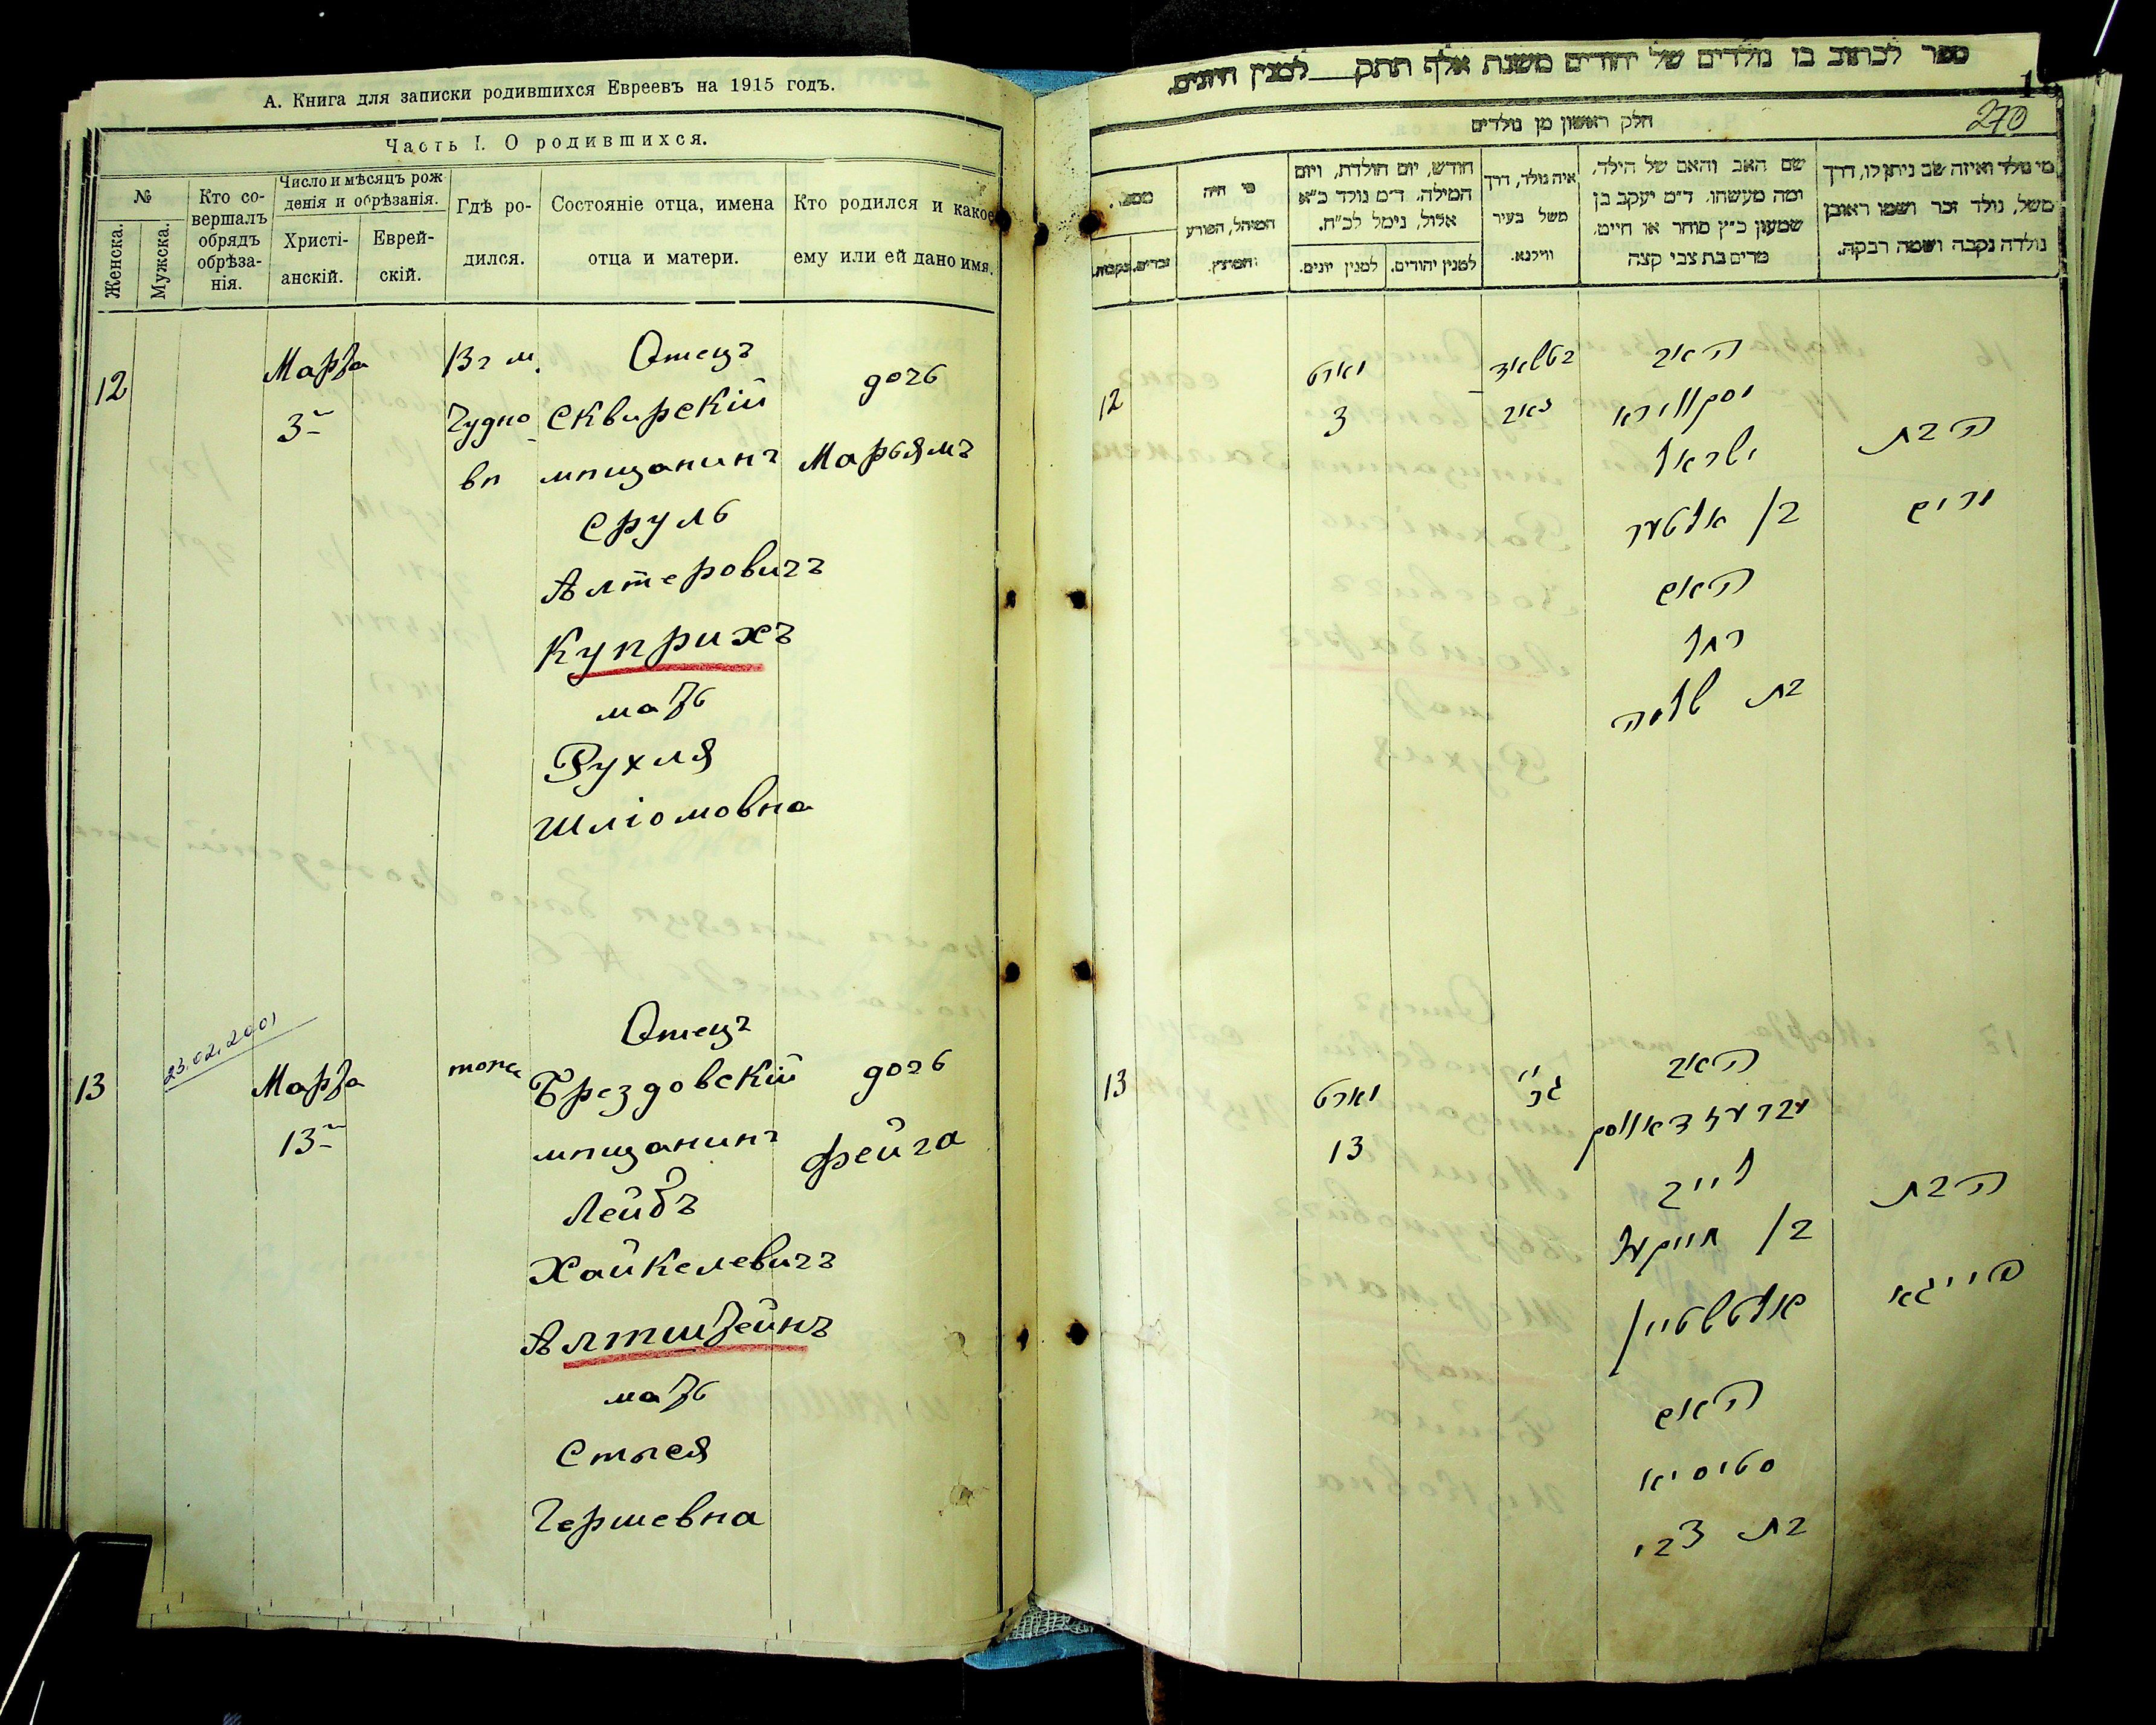 А. Книга для записки родившихся Евреевъ на 1915 годъ.
Часть I. О родившихся.
№
Женска.
Мужска.
Кто со-
вершалъ
обрядъ
обрѣза-
нія.
Число и мѣсяцъ рож
денія и обрѣзанія.
Христі-
анскій.
Еврей-
скій.
Гдѣ ро-
дился.
Состояніе отца, имена
отца и матери.
Кто родился и какое
ему или ей дано имя.
12
Марта
3
Вг м.
Чудно
вѣ
Отецъ
Сквирскій
мѣщанинъ
Сруль
Алтеровичъ
Куприхъ
мать
Рухля
Шліомовна
дочь
Марьямъ
13
23.02.2001
Марта
13
тоже
Отецъ
Брездовскій
мѣщанинъ
Лейбъ
Хайкелевичъ
Алтштейнъ
мать
Стыся
Гершевна
дочь
Фейга
ספר לכתוב בו נולדים של יהודים משנת אלף תתק למנין היונים.
270
חלק ראשון מן נולדים
מי נולד ואיזה שם ניתן לו, דרך
משל, נולד זכר ושמו ראובן
נולדה נקבה ושמה רבקה.
שם האב והאם של הילד,
ומה מעשהו. ד״מ יעקב בן
שמעון כ״ץ סוחר או חייט.
מרים בת צבי קצה
איה נולד, דרך
משל בעיר
ווילנא.
חודש, יום הולדת, ויום
המילה. ד״מ נולד כ״א
אלול, נימל לכ״ח.
למנין יהודים.
למנין יונים.
מי היה
המוהל, הפורע
והמוצץ.
מספר.
זכרים.
נקבות.
12
מארט
3
האב
ישראל
בן אלטער
האם
רחל
בת שלמה
הבת
מרים
13
מארט
13
האב
לייב
בן חייקעל
אלטשטיין
האם
סטיסיא
בת צבי
הבת
פייגא